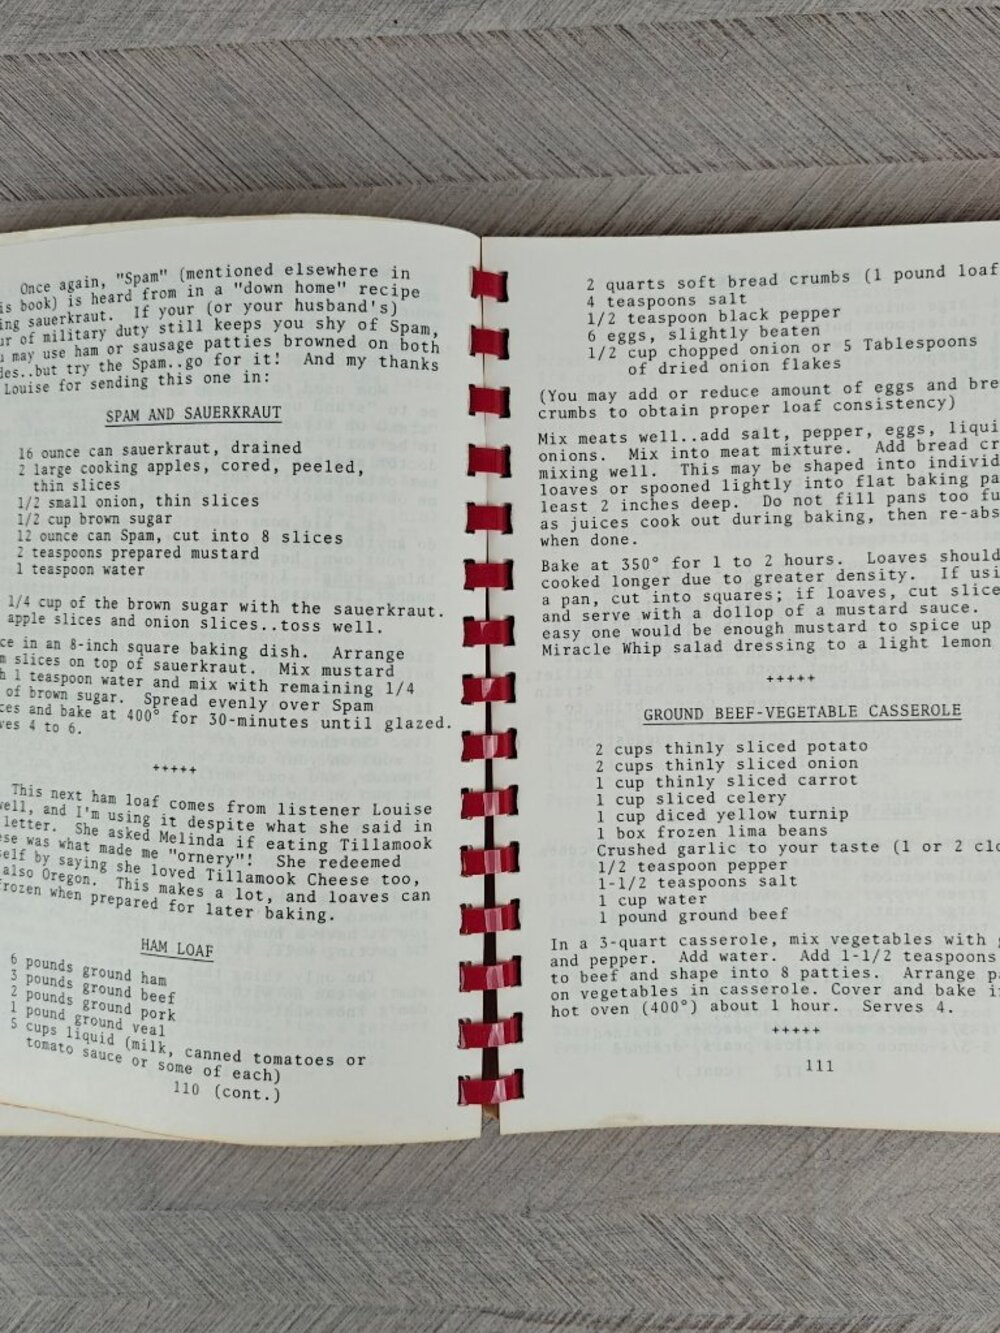 Once again, "Spam" (mentioned elsewhere in
is book) is heard from in a "down home" recipe
ing sauerkraut. If your (or your husband's)
ur of military duty still keeps you shy of Spam,
u may use ham or sausage patties browned on both
des..but try the Spam..go for it! And my thanks
Louise for sending this one in:
SPAM AND SAUERKRAUT
16 ounce can sauerkraut, drained
2 large cooking apples, cored, peeled,
thin slices
1/2 small onion, thin slices
1/2 cup brown sugar
12 ounce can Spam, cut into 8 slices
2 teaspoons prepared mustard
1 teaspoon water
1/4 cup of the brown sugar with the sauerkraut.
apple slices and onion slices..toss well.
ce in an 8-inch square baking dish. Arrange
m slices on top of sauerkraut. Mix mustard
h 1 teaspoon water and mix with remaining 1/4
of brown sugar. Spread evenly over Spam
ces and bake at 400° for 30-minutes until glazed.
ves 4 to 6.
+++++
This next ham loaf comes from listener Louise
well, and I'm using it despite what she said in
letter. She asked Melinda if eating Tillamook
ese was what made me "ornery"! She redeemed
self by saying she loved Tillamook Cheese too,
also Oregon. This makes a lot, and loaves can
frozen when prepared for later baking.
HAM LOAF
6 pounds ground ham
3 pounds ground beef
2 pounds ground pork
1 pound ground veal
5 cups liquid (milk, canned tomatoes or
tomato sauce or some of each)
110 (cont.)
2 quarts soft bread crumbs (1 pound loaf
4 teaspoons salt
1/2 teaspoon black pepper
6 eggs, slightly beaten
1/2 cup chopped onion or 5 Tablespoons
of dried onion flakes
(You may add or reduce amount of eggs and bre
crumbs to obtain proper loaf consistency)
Mix meats well..add salt, pepper, eggs, liqui
onions. Mix into meat mixture. Add bread cr
mixing well. This may be shaped into individ
loaves or spooned lightly into flat baking pa
least 2 inches deep. Do not fill pans too fu
as juices cook out during baking, then re-abs
when done.
Bake at 350° for 1 to 2 hours. Loaves should
cooked longer due to greater density. If usi
a pan, cut into squares; if loaves, cut slice
and serve with a dollop of a mustard sauce.
easy one would be enough mustard to spice up
Miracle Whip salad dressing to a light lemon
+++++
GROUND BEEF-VEGETABLE CASSEROLE
2 cups thinly sliced potato
2 cups thinly sliced onion
1 cup thinly sliced carrot
1 cup sliced celery
1 cup diced yellow turnip
1 box frozen lima beans
Crushed garlic to your taste (1 or 2 clo
1/2 teaspoon pepper
1-1/2 teaspoons salt
1 cup water
1 pound ground beef
In a 3-quart casserole, mix vegetables with g
and pepper. Add water. Add 1-1/2 teaspoons
to beef and shape into 8 patties. Arrange pa
on vegetables in casserole. Cover and bake i
hot oven (400°) about 1 hour. Serves 4.
+++++
111